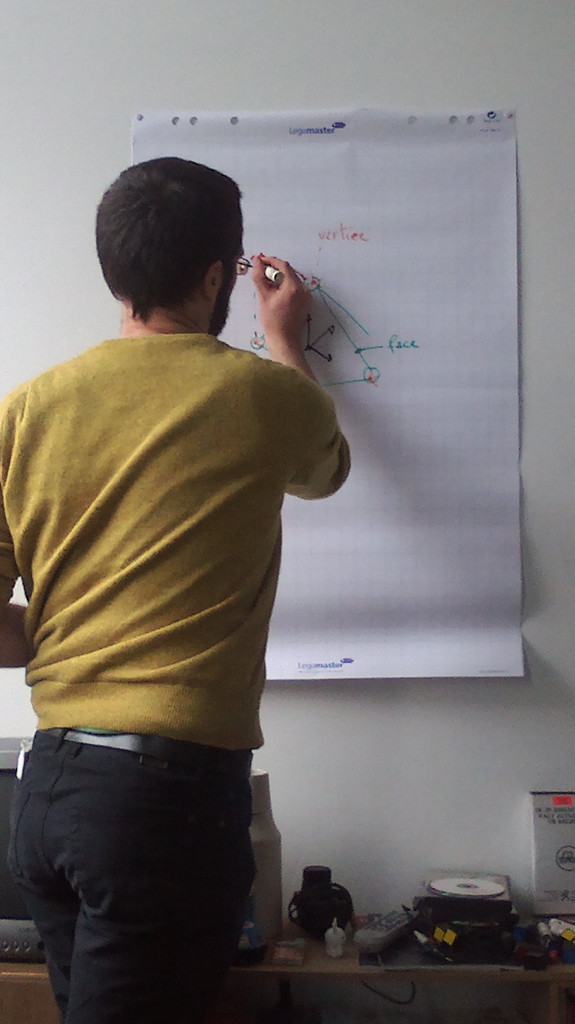 Legamaster
vertice
face
Legamaster